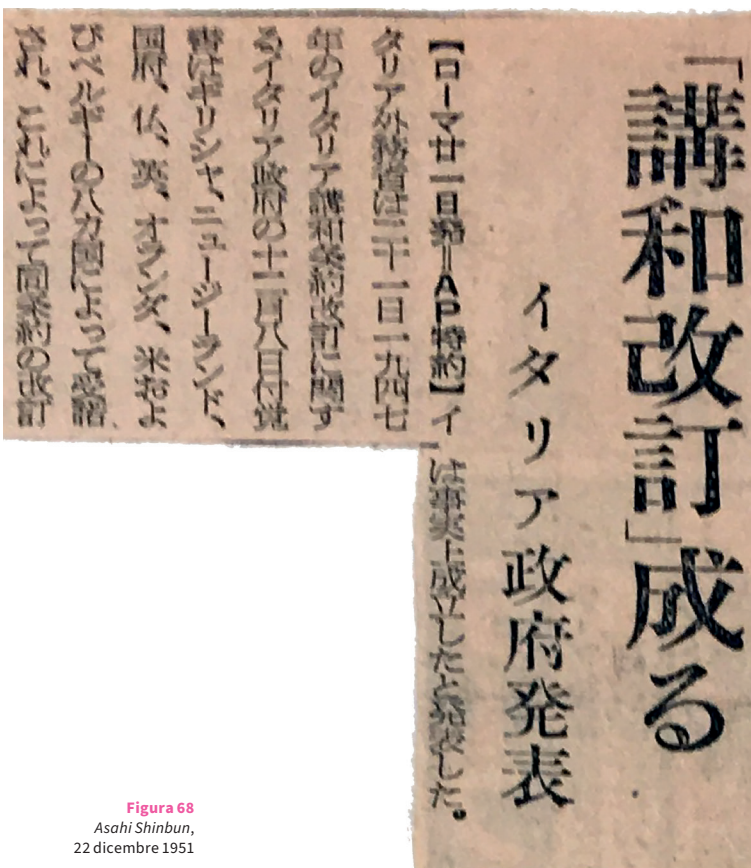 「講和改訂」成る
イタリア政府発表
【ローマ廿一日発=AP特約】イ
タリア外務省は二十一日一九四七
年のイタリア講和条約改訂に関す
るイタリア政府の十二月八日付覚
書はギリシャ、ニュージーランド、
国府、仏、英、オランダ、米およ
びベルギーの八カ国によって受諾
され、これによって同条約の改訂
は事実上成立したと発表した。
Figura 68
Asahi Shinbun,
22 dicembre 1951